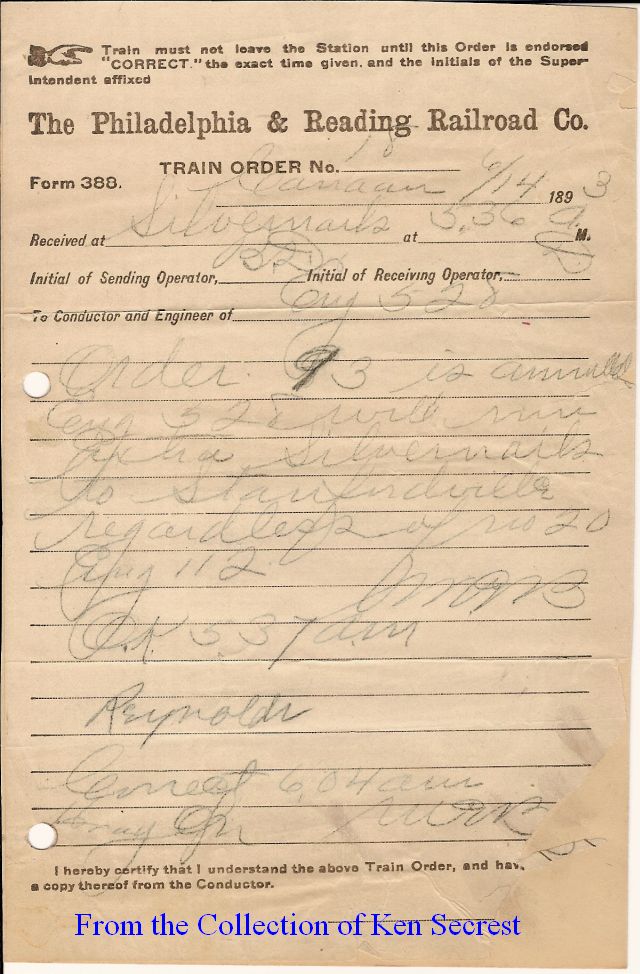 Train must not leave the Station until this Order is endorsed
"CORRECT." the exact time given, and the Initials of the Super-
intendent affixed
The Philadelphia & Reading Railroad Co.
TRAIN ORDER No. 18
Form 388.
Canaan 6/14 1893
Received at Silvernails at 5.36 a M.
Initial of Sending Operator, Initial of Receiving Operator,
To Conductor and Engineer of Eng 528
Order 93 is annulled
Eng 528 will run
extra Silvernails
to Stanfordville
regardless of no 20
Eng 112
O.K 5.37 am
Reynolds
Correct 6.04 am
I hereby certify that I understand the above Train Order, and hav
a copy thereof from the Conductor.
From the Collection of Ken Secrest